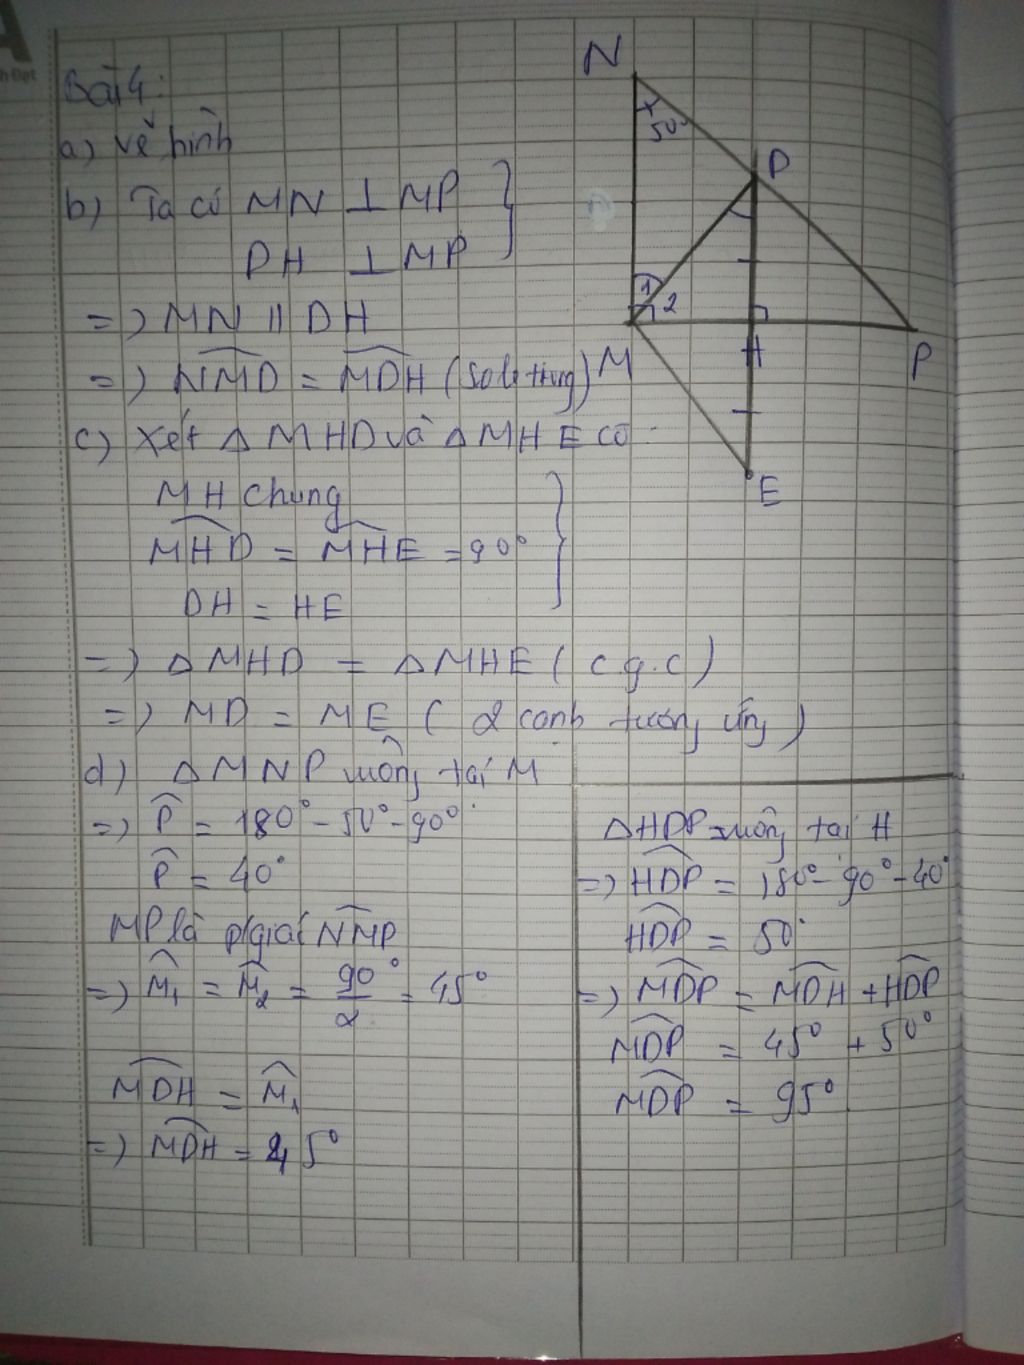 Bài 4:
a) vẽ hình
b) Ta có MN ⊥ MP
DH ⊥ MP
=> MN // DH
=> NMD = MDH (so le trong)
c) Xét Δ MHD và Δ MHE có:
MH chung
MHD = MHE = 90°
DH = HE
=> Δ MHD = Δ MHE (c.g.c)
=> MD = ME (2 cạnh tương ứng)
d) Δ MNP vuông tại M
=> P = 180° - 50° - 90°
P = 40°
MP là p/giác NMP
=> M1 = M2 = 90°/2 = 45°
MDH = M1
=> MDH = 45°
ΔHDP vuông tại H
=> HDP = 180° - 90° - 40°
HDP = 50°
=> MDP = MDH + HDP
MDP = 45° + 50°
MDP = 95°
N
50°
D
1
2
M
H
P
E